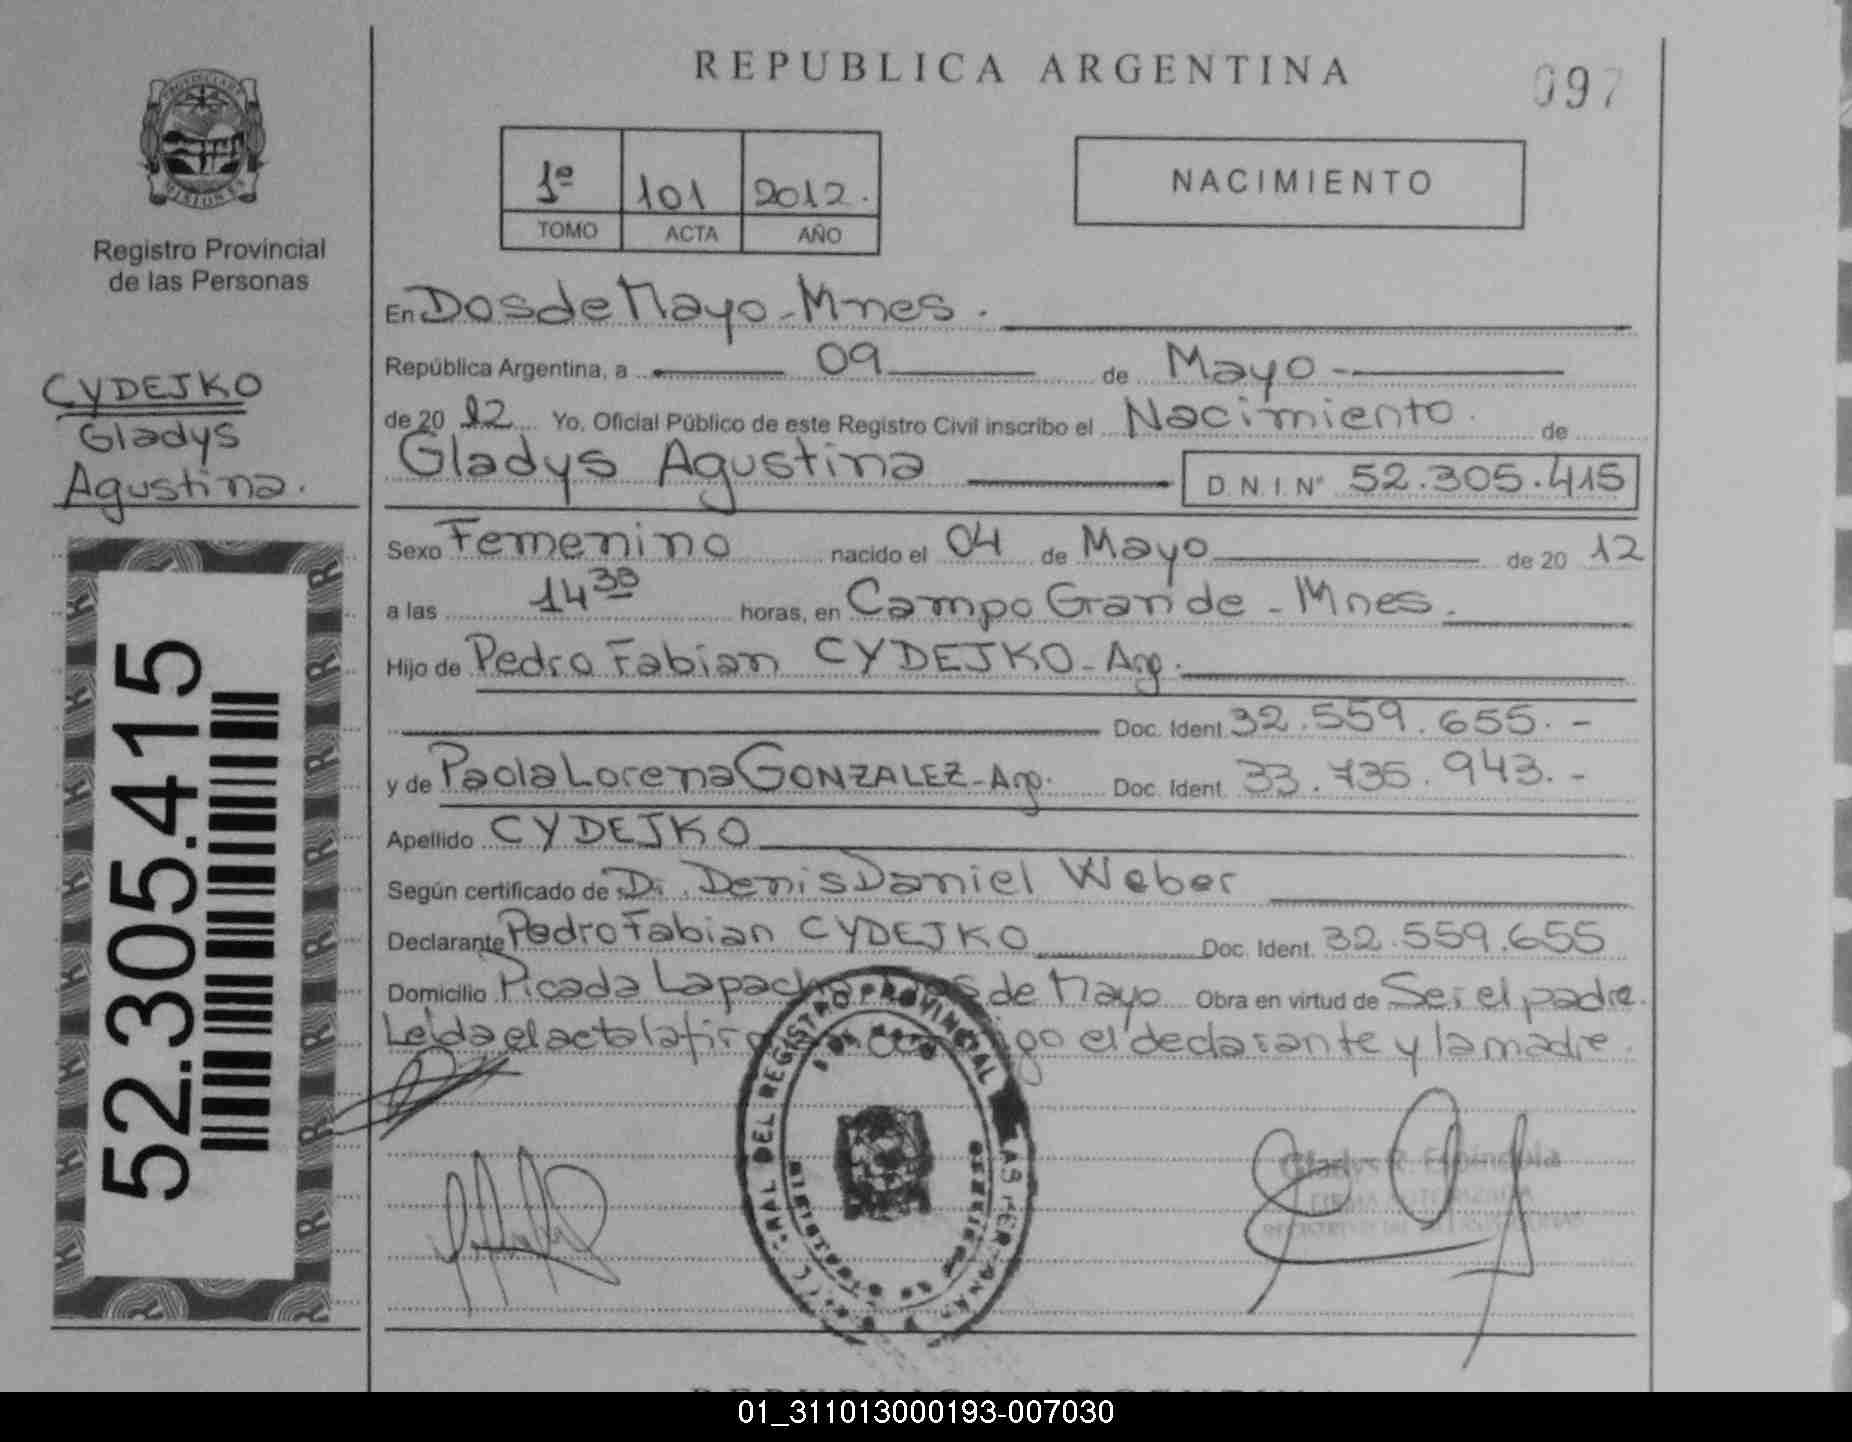 REPUBLICA ARGENTINA
097
1º 101 2012.
TOMO ACTA AÑO
NACIMIENTO
Registro Provincial
de las Personas
CYDEJKO
Gladys
Agustina.
52.305.415
En Dos de Mayo - Mnes.
República Argentina, a 09 de Mayo -
de 20 12 Yo, Oficial Público de este Registro Civil inscribo el Nacimiento. de
Gladys Agustina D.N.I. Nº 52.305.415
Sexo Femenino nacido el 04 de Mayo de 20 12
a las horas, en Campo Grande - Mnes.
Hijo de Pedro Fabian CYDEJKO - Arg.
Doc. Ident. 32.559.655. -
y de Paola Lorena GONZALEZ - Arg. Doc. Ident. 33.735.943. -
Apellido CYDEJKO
Según certificado de Dr. Denis Daniel Weber
Declarante Pedro Fabian CYDEJKO Doc. Ident. 32.559.655
Domicilio Picada Lapacho de Mayo Obra en virtud de Ser el padre.
Leida el acta la el declarante y la madre.
DEL REGISTRO PROVINCIAL
Gladys R. Espindola
FIRMA AUTORIZADA
REPUBLICA ARGENTINA
01_311013000193-007030